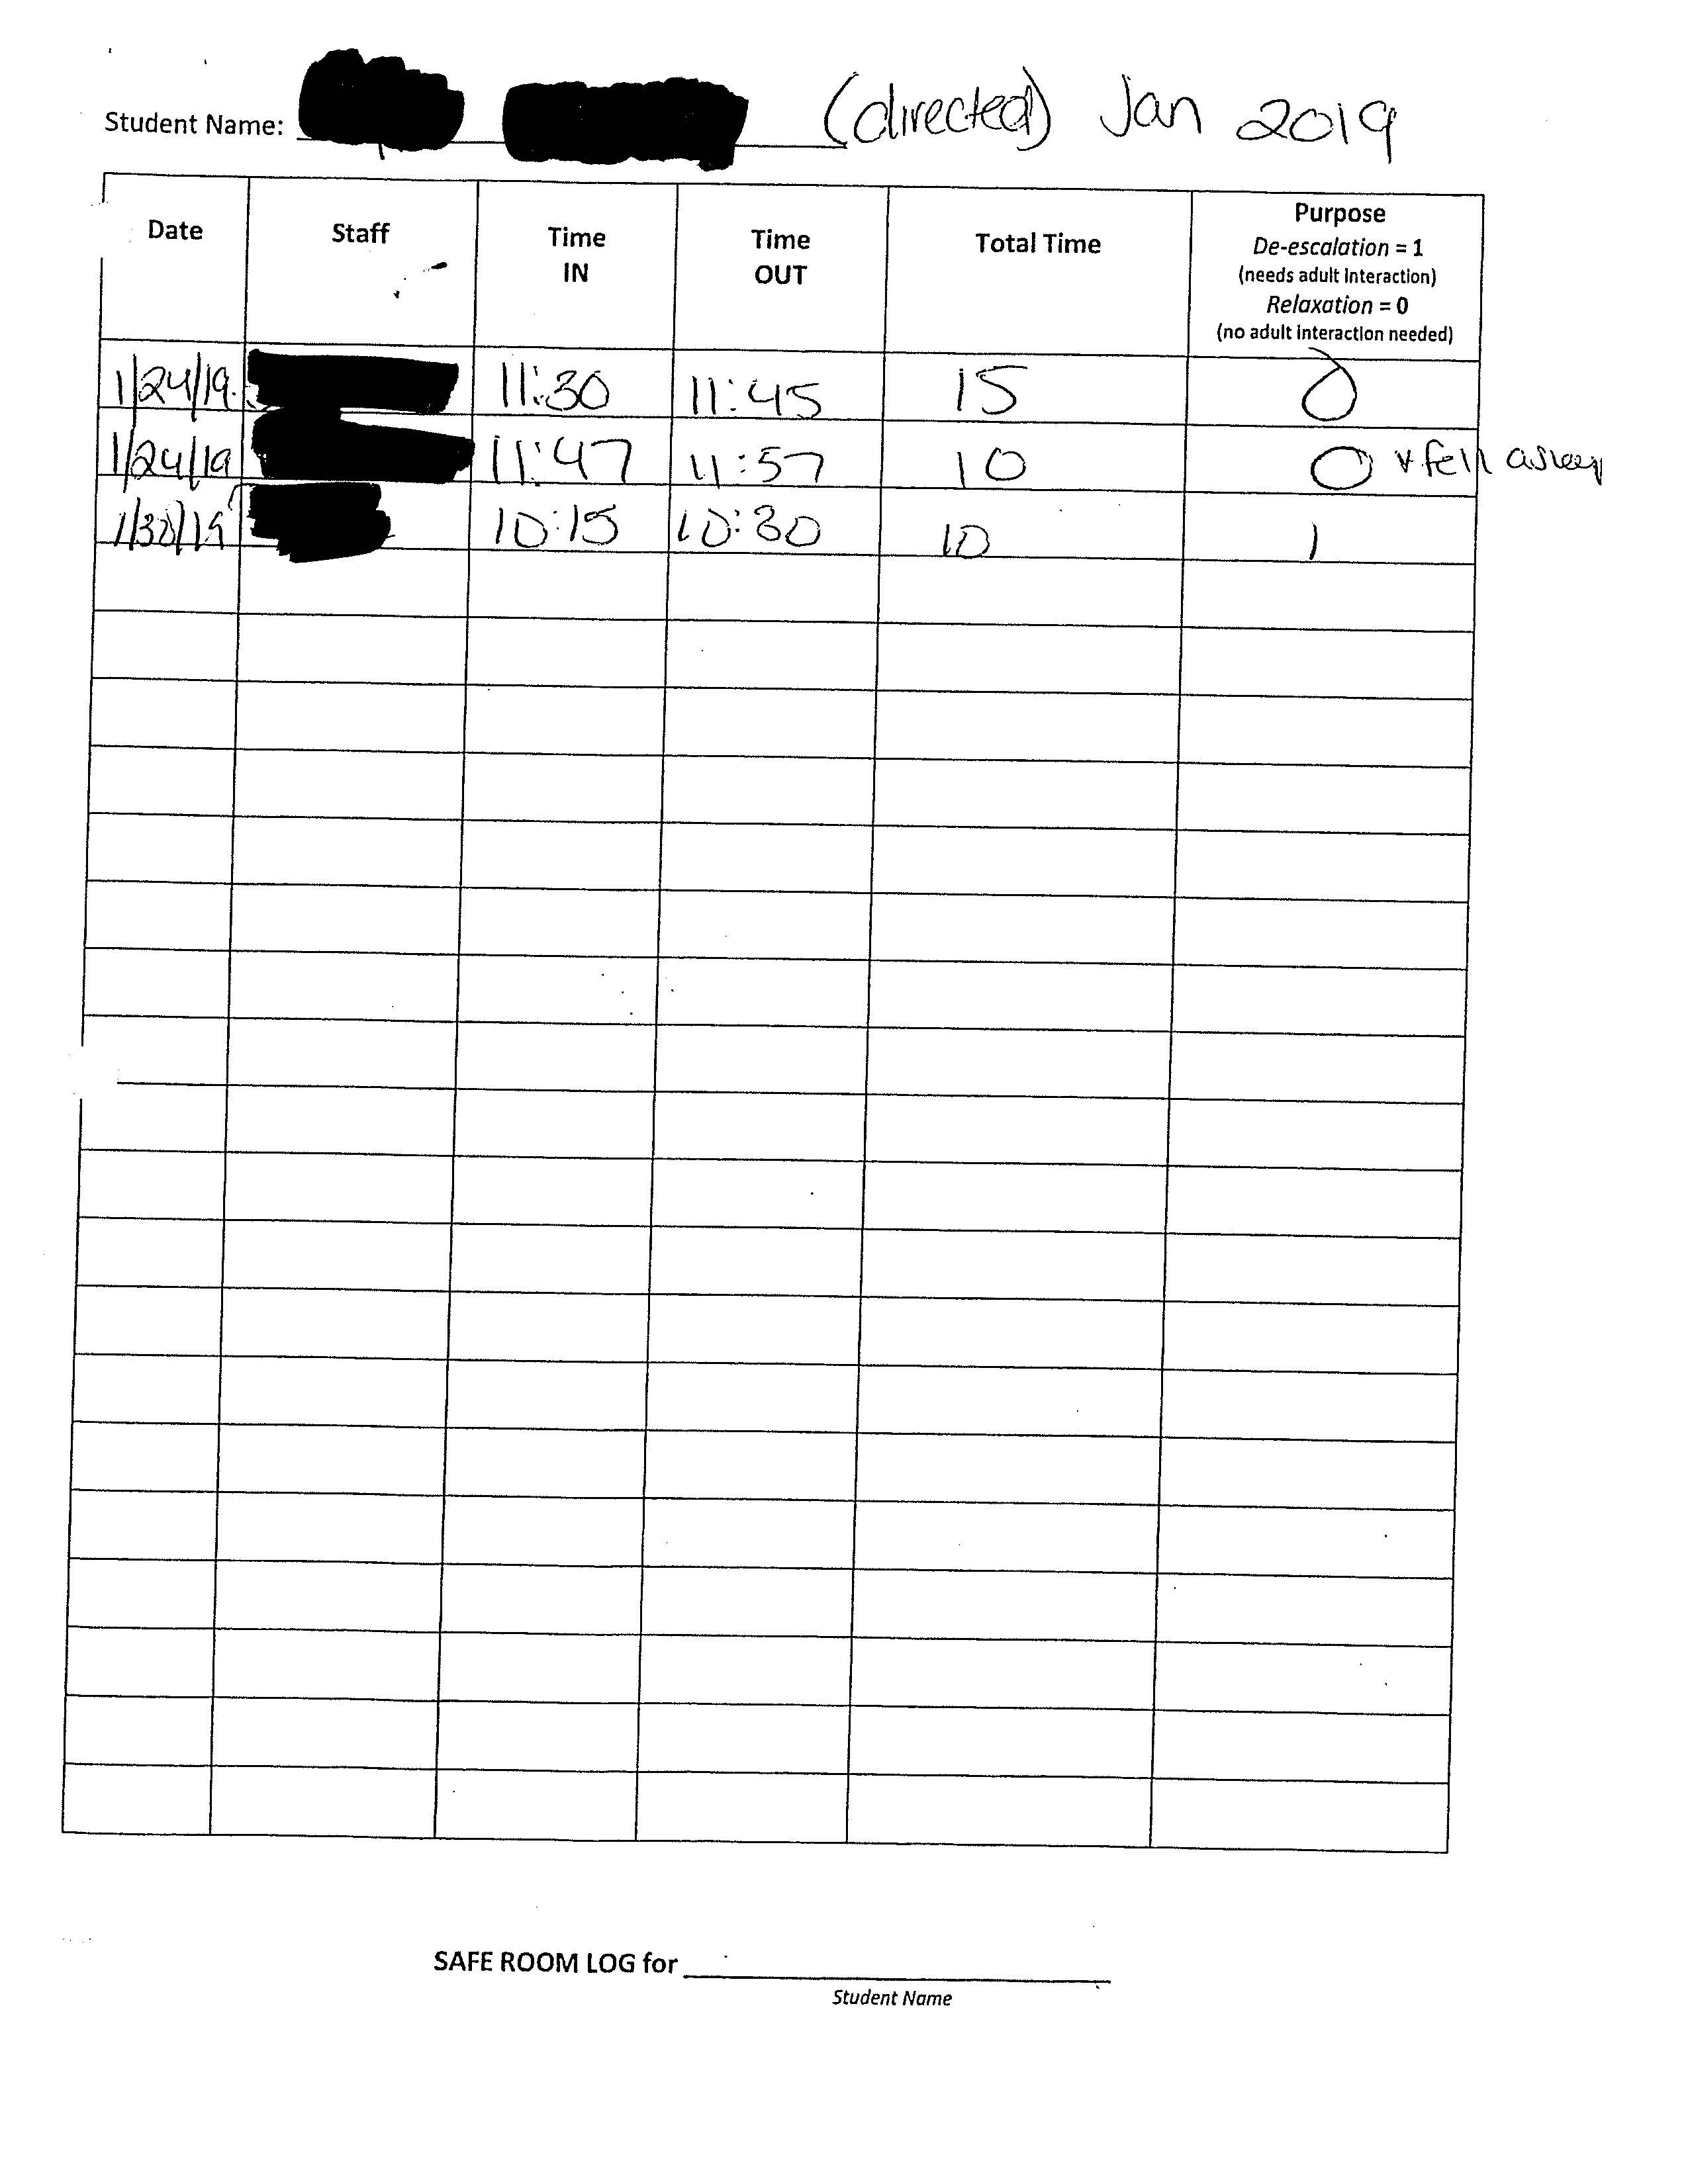 Student Name: (directed) Jan 2019
Date Staff Time IN Time OUT Total Time Purpose
De-escalation = 1
(needs adult interaction)
Relaxation = 0
(no adult interaction needed)
1/24/19 11:30 11:45 15 0
1/24/19 11:47 11:57 10 0 * fell asleep
1/30/19 10:15 10:30 10 1
SAFE ROOM LOG for
Student Name